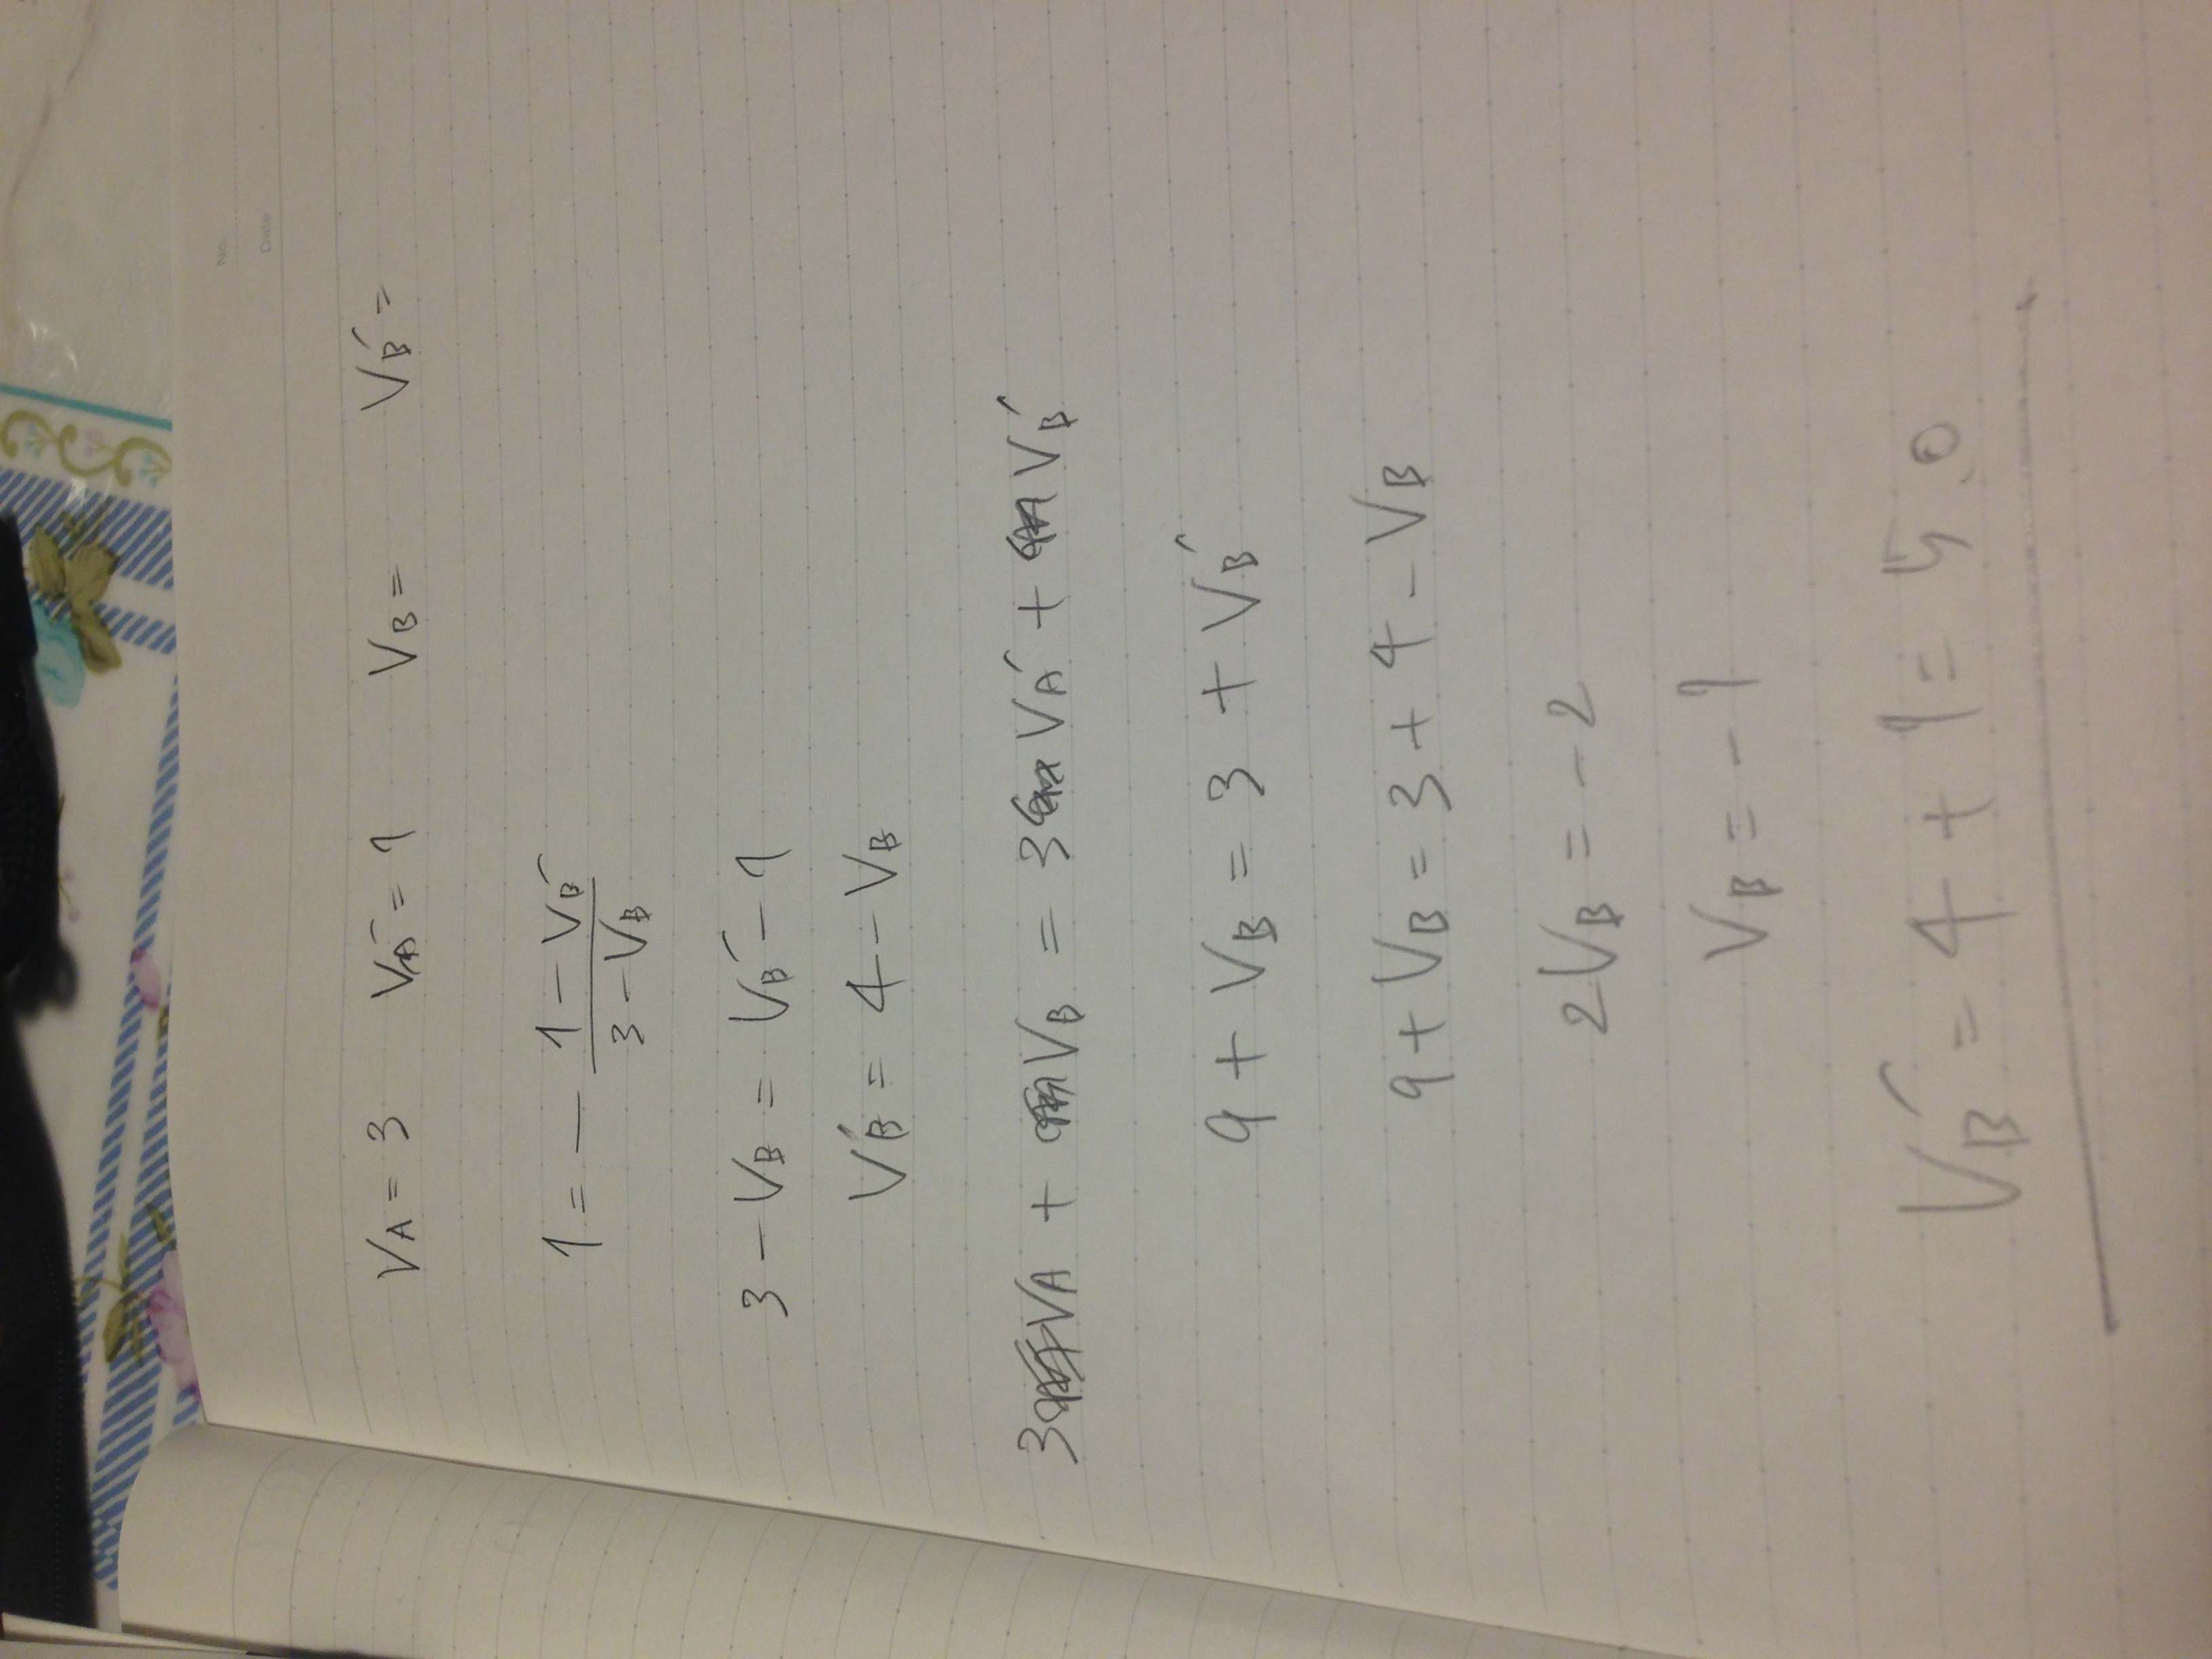 No.
Date
V_A = 3 V_A' = 1 V_B = V_B' =
1 = - \frac{1 - V_B'}{3 - V_B}
3 - V_B = V_B' - 1
V_B' = 4 - V_B
3 V_A + V_B = 3 V_A' + V_B'
9 + V_B = 3 + V_B'
9 + V_B = 3 + 4 - V_B
2V_B = -2
V_B = -1
V_B' = 4 + 1 = 5.0